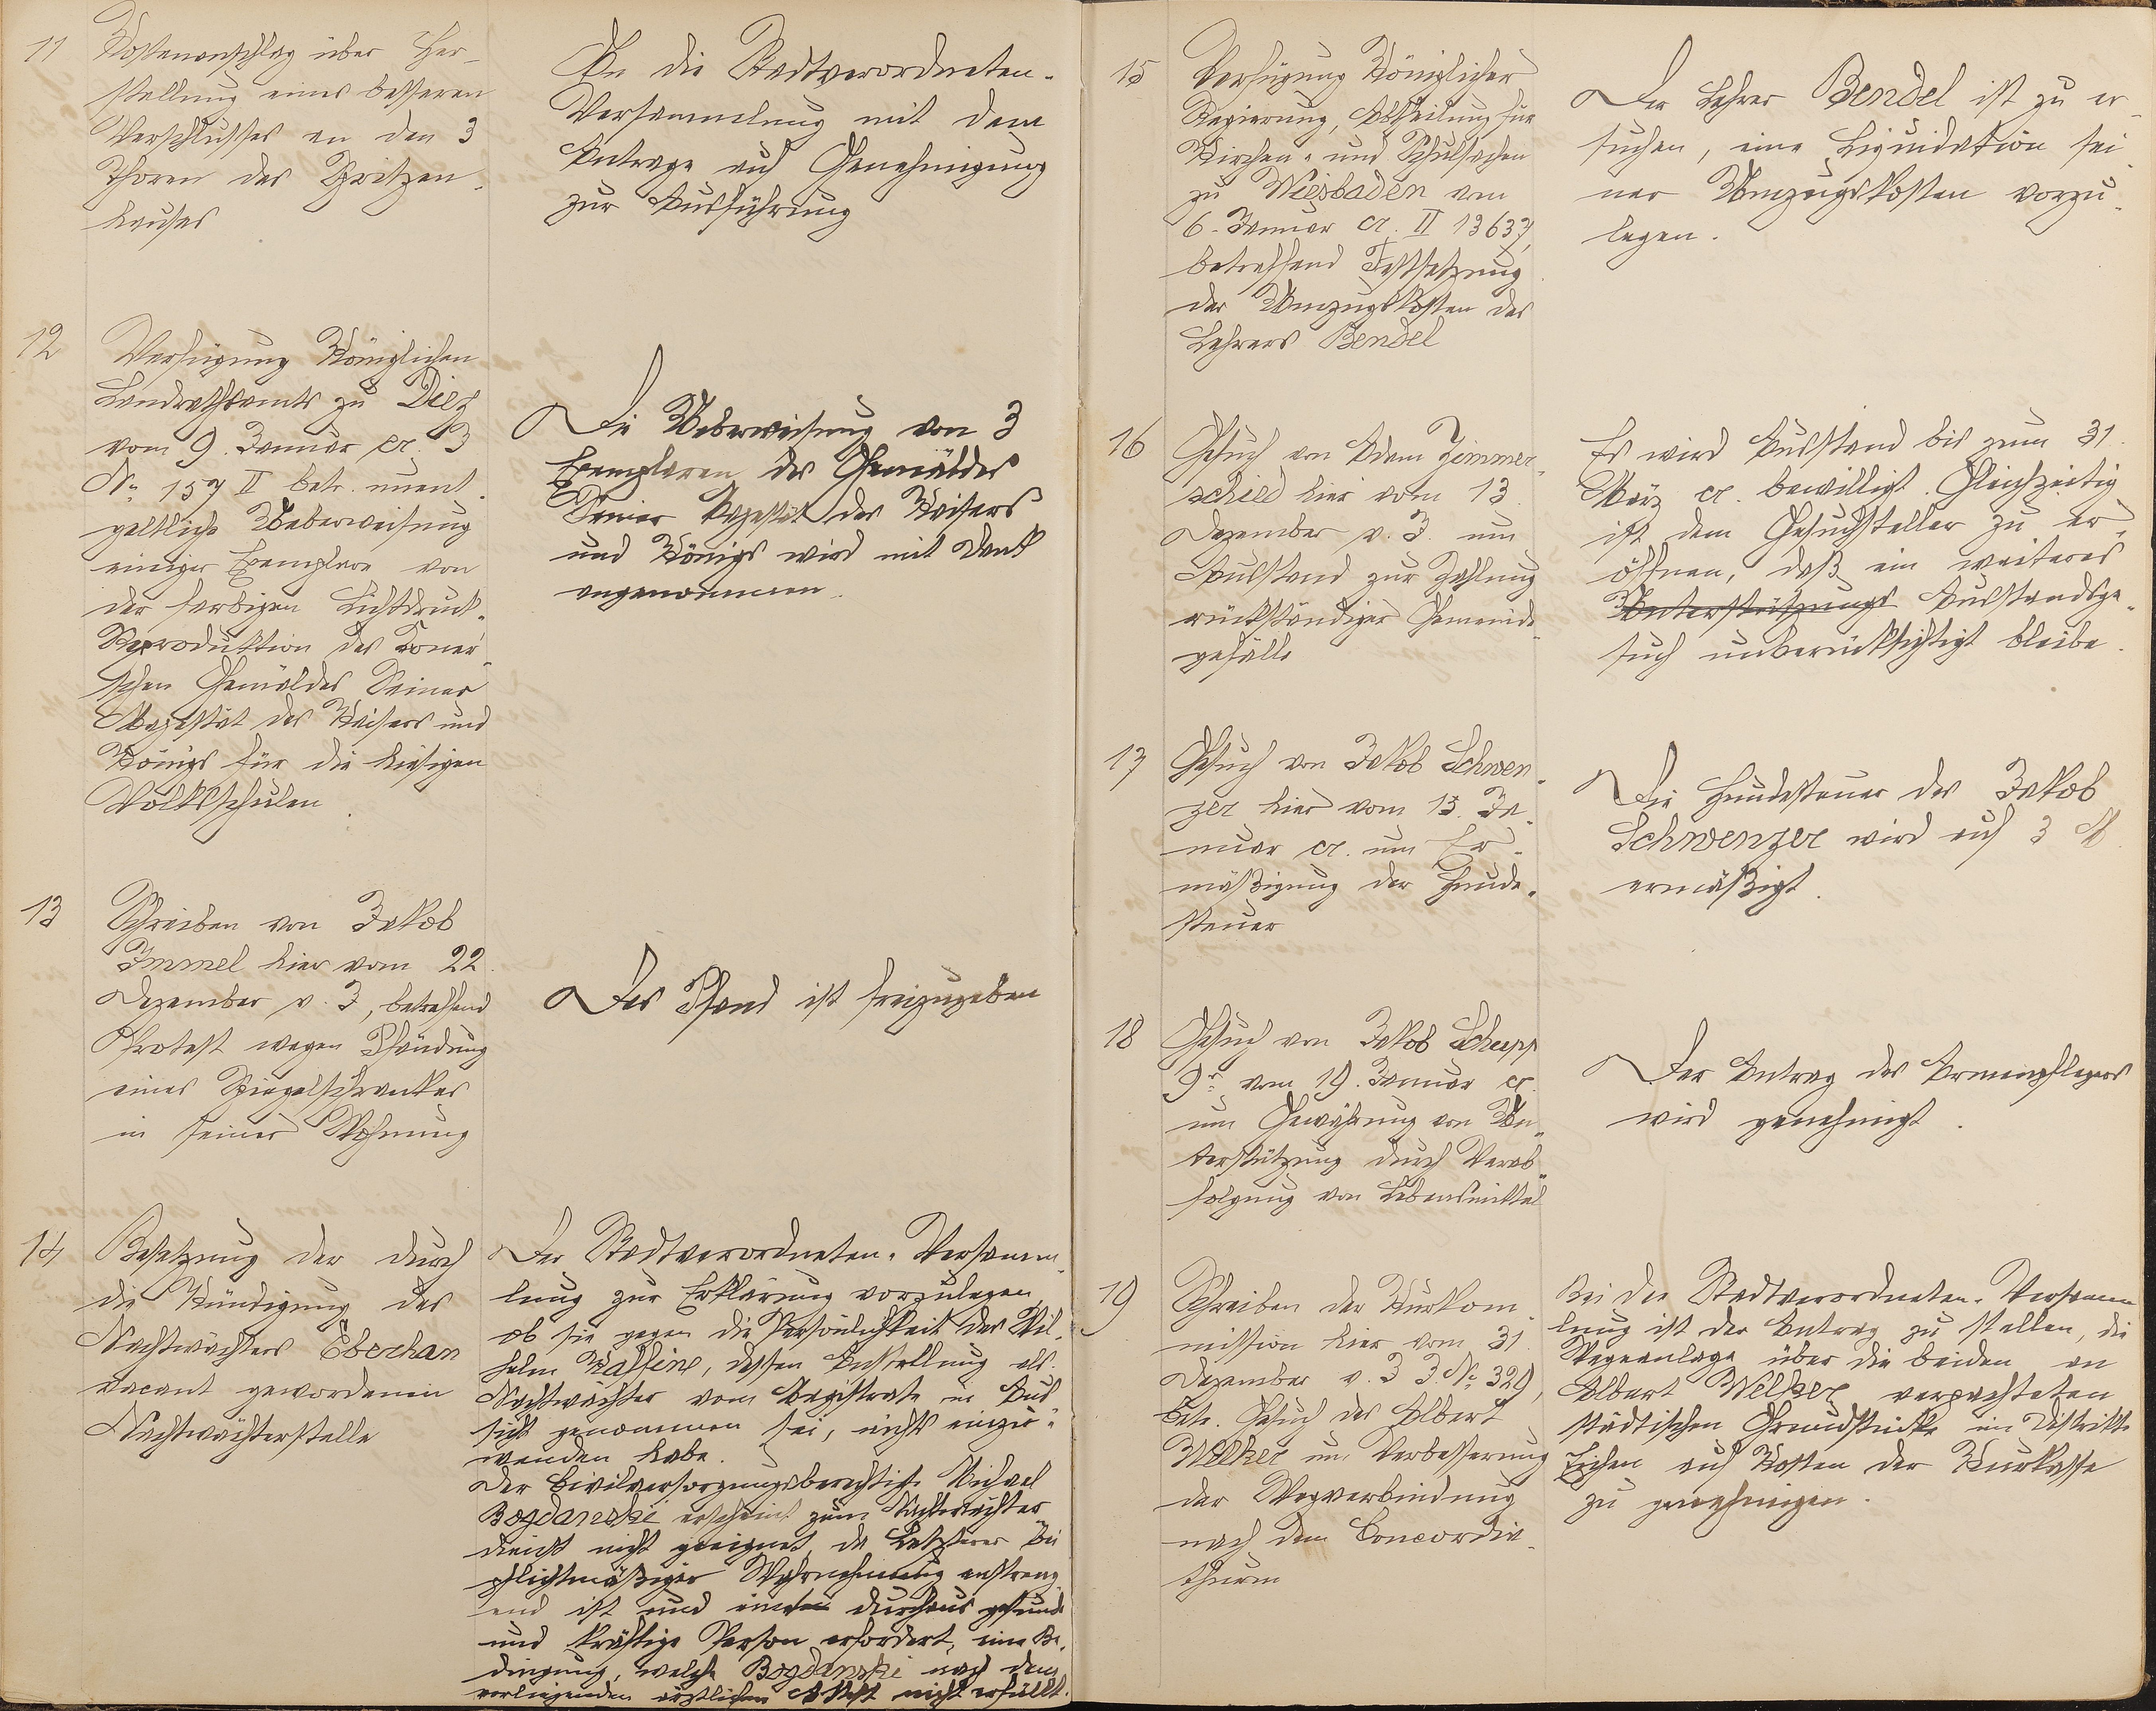 11
Kostenanschlag über Her-
stellung eines besseren
Verschlusses an den 3
Thoren des Spritzen-
hauses
An die Stadtverordneten-
Versammlung mit dem
Antrage auf Genehmigung
zur Ausführung
12
Verfügung Königlichen
Landrathsamts zu Diez
vom 9. Januar cr. J
No 157 II betr. unent-
geltliche Ueberweisung
einiger Exemplare von
der farbigen Lichtdruck-
Reproduktion des Koner-
schen Gemäldes Seiner
Majestät des Kaisers und
Königs für die hiesigen
Volksschulen
Die Ueberweisung von 3
Exemplaren des Gemäldes
Seiner Majestät des Kaisers
und Königs wird mit Dank
angenommen.
13
Schreiben von Jakob
Immel hier vom 22.
Dezember v. J, betreffend
Protest wegen Pfändung
eines Spiegelschrankes
in seiner Wohnung
Das Pfand ist freizugeben
14
Besetzung der durch
die Kündigung des
Nachtwächters Eberhan
vacant gewordenen
Nachtwächterstelle
Der Stadtverordneten-Versamm-
lung zur Erklärung vorzulegen,
ob sie gegen die Persönlichkeit des Wil-
helm Kalteine, dessen Anstellung als
Nachtwächter vom Magistrate in Aus-
sicht genommen sei, nichts einzu-
wenden habe.
Der Civilversorgungsberechtigte Michael
Bogdanski erscheint zum Nachtwächter
dienst nicht geeignet, da Letzterer bei
pflichtmäßiger Wahrnehmung anstreng-
end ist und eine durchaus gesunde
und kräftige Person erfordert, eine Be-
dingung, welche Bogdanski nach dem
vorliegenden ärztlichen Attest nicht erfüllt.
15
Verfügung Königlicher
Regierung, Abtheilung für
Kirchen- und Schulsachen
zu Wiesbaden vom
6. Januar cr. II 13637,
betreffend Festsetzung
der Umzugskosten des
Lehrers Bendel
Der Lehrer Bendel ist zu er-
suchen, eine Liquidation sei-
ner Umzugskosten vorzu-
legen.
16
Gesuch von Adam Zimmer-
schied hier vom 13.
Dezember v. J. um
Ausstand zur Zahlung
rückständiger Gemeinde-
gefälle
Es wird Ausstand bis zum 31.
März cr. bewilligt. Gleichzeitig
ist dem Gesuchsteller zu er-
öffnen, daß ein weiteres
Unterstützungs Ausstandsge-
such unberücksichtigt bleibe.
17
Gesuch von Jakob Schwen-
zer hier vom 13. Ja-
nuar cr. um Er-
mäßigung der Hunde-
steuer
Die Hundesteuer des Jakob
Schwenzer wird auf 3 M
ermäßigt.
18
Gesuch von Jakob Schupp
9r vom 19. Januar cr.
um Gewährung von Un-
terstützung durch Verab-
folgung von Lebensmittel
Der Antrag des Armenpflegers
wird genehmigt.
19
Schreiben der Kurkom-
mission hier vom 31.
Dezember v. J J. No 329,
betr. Gesuch des Albert
Welker um Verbesserung
der Wegverbindung
nach dem Concordia-
thurm
Bei der Stadtverordneten-Versamm
lung ist der Antrag zu stellen, die
Wegeanlage über die beiden an
Albert Welker verpachteten
städtischen Grundstücke im Distrikte
Eichen auf Kosten der Kurkasse
zu genehmigen.